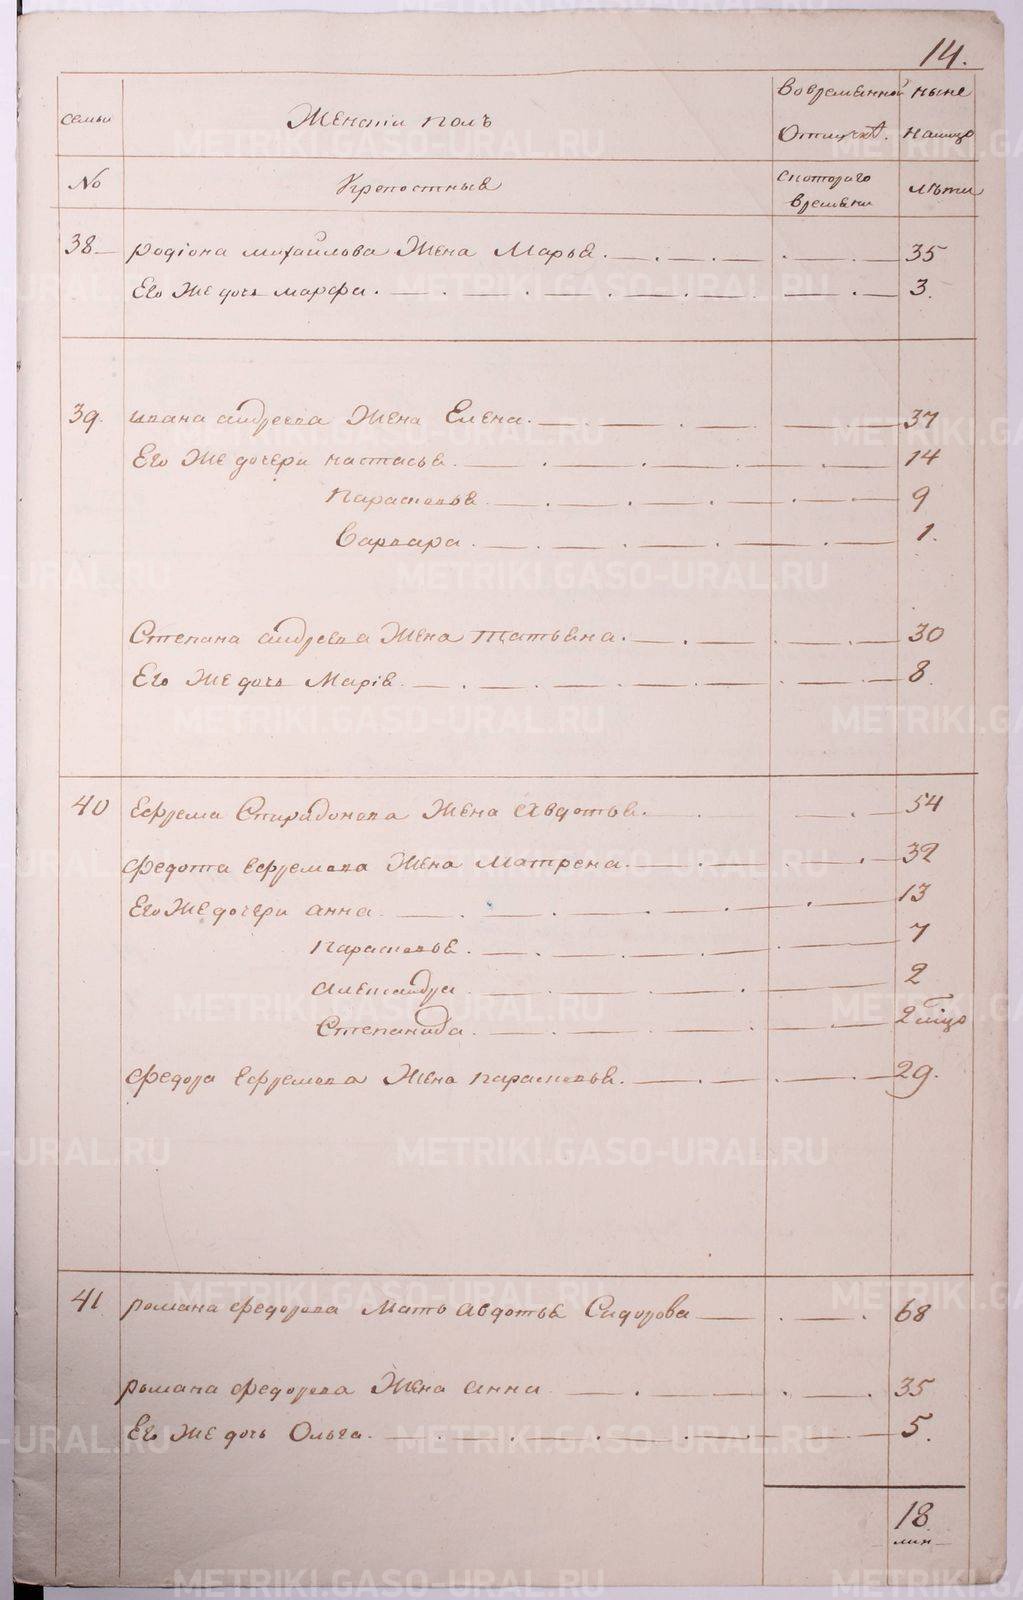 14.
семьи Женскій полъ Вовременной ныне
Отлучкѣ. налицо
No Крепостные скотораго лѣты
времени
38 родіона михайлова Жена Марья. 35
Его Же дочь марфа. 3.
39. ивана андреева Жена Елена. 37
Его Же дочери настасья. 14
Парасковья 9
Варвара. 1.
Степана андреева Жена татьяна. 30
Его Же дочь Марія. 8.
40 Ефрема Спиридонова Жена Авдотья. 54
Федота Ефремова Жена Матрена. 32
Его Же дочери анна 13
Парасковья. 7
Александра 2
Степанида. 2
Федора Ефремова Жена парасковья. 29.
41 романа федорова Мать Авдотья Сидорова 68
романа федорова Жена анна 35
Его Же дочь Ольга. 5.
18
METRIKI.GASO-URAL.RU